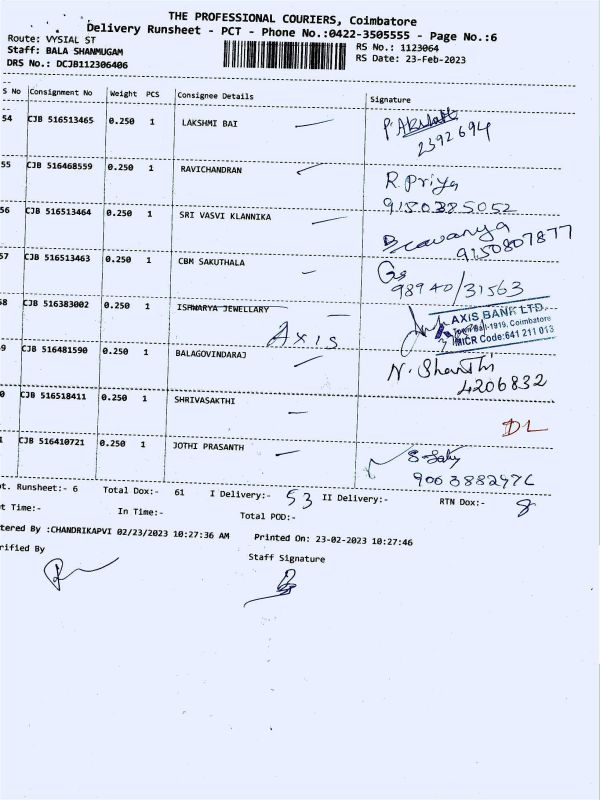 THE PROFESSIONAL COURIERS, Coimbatore
Delivery Runsheet - PCT - Phone No.:0422-3505555 - Page No.:6
Route: VYSIAL ST
RS No.: 1123064
Staff: BALA SHANMUGAM
RS Date: 23-Feb-2023
DRS No.: DCJB112306406
S No Consignment No Weight PCS Consignee Details Signature
54 CJB 516513465 0.250 1 LAKSHMI BAI
2392694
55 CJB 516468559 0.250 1 RAVICHANDRAN R. Priya
9150385052
56 CJB 516513464 0.250 1 SRI VASVI KLANNIKA
9150807877
57 CJB 516513463 0.250 1 CBM SAKUTHALA
98940/31563
58 CJB 516383002 0.250 1 ISHWARYA JEWELLARY
Axis
AXIS BANK LTD.
Town Hall-1919, Coimbatore
MICR Code:641 211 013
9 CJB 516481590 0.250 1 BALAGOVINDARAJ N. Shanthi
4206832
0 CJB 516518411 0.250 1 SHRIVASAKTHI
DL
1 CJB 516410721 0.250 1 JOTHI PRASANTH
t. Runsheet:- 6 Total Dox:- 61 I Delivery:- 53 II Delivery:- RTN Dox:- 8
t Time:- In Time:- Total POD:-
tered By :CHANDRIKAPVI 02/23/2023 10:27:36 AM Printed On: 23-02-2023 10:27:46
rified By Staff Signature